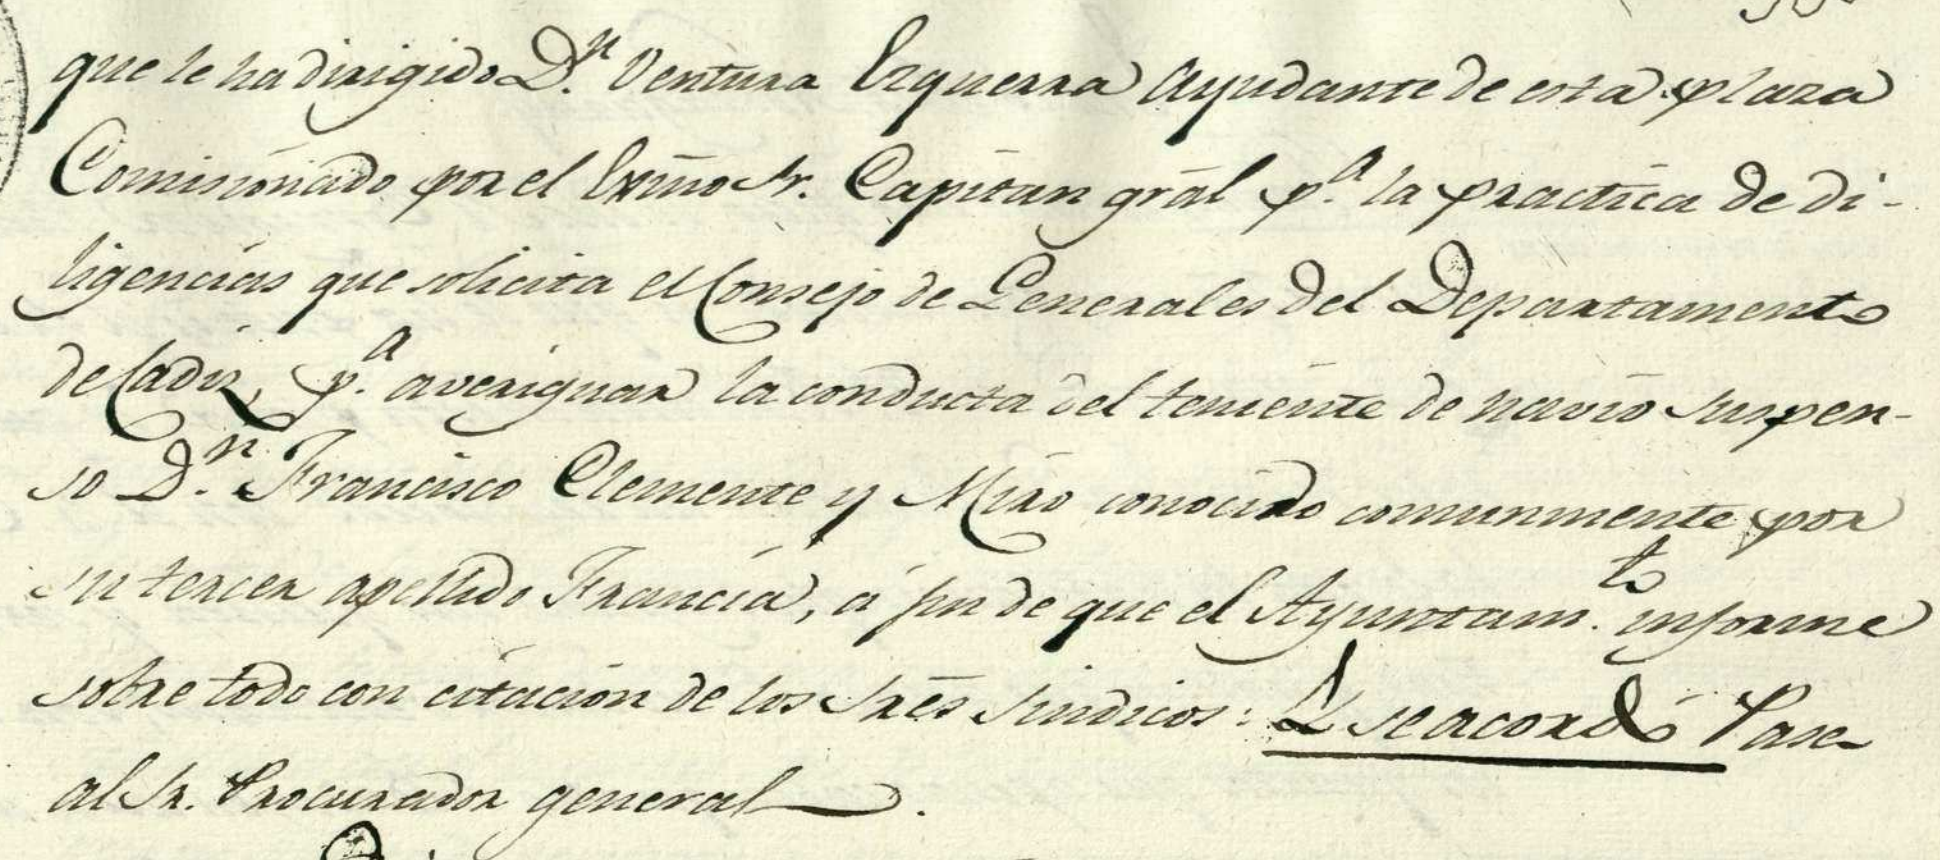 que le ha dirigido D.n Ventura Ezquerra Ayudante de esta plaza
Comisionado por el Exmo Sr. Capitan gral p.a la practica de di-
ligencias que solicita el Consejo de Generales del Departamento
de Cadiz, p.a averiguar la conducta del teniente de navio suspen-
so D.n Francisco Clemente y Miro conocido comunmente por
su tercer apellido Francia, á fin de que el Ayuntam.to informe
sobre todo con citacion de los Sres Sindicos: Y se acordó Pase
al Sr. Procurador general.